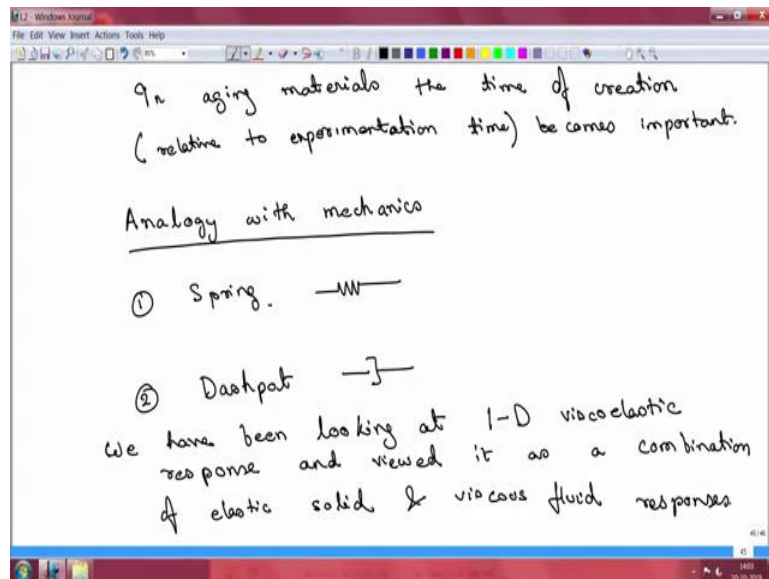 L2 - Windows Journal
File Edit View Insert Actions Tools Help
In aging materials the time of creation
(relative to experimentation time) becomes important.
Analogy with mechanics
① Spring.
② Dashpot
We have been looking at 1-D viscoelastic
response and viewed it as a combination
of elastic solid & viscous fluid responses
45/46
45
14:03